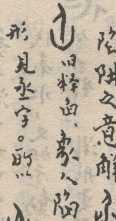 陷阱之意
旧释、象人陷
形見丞字。所以